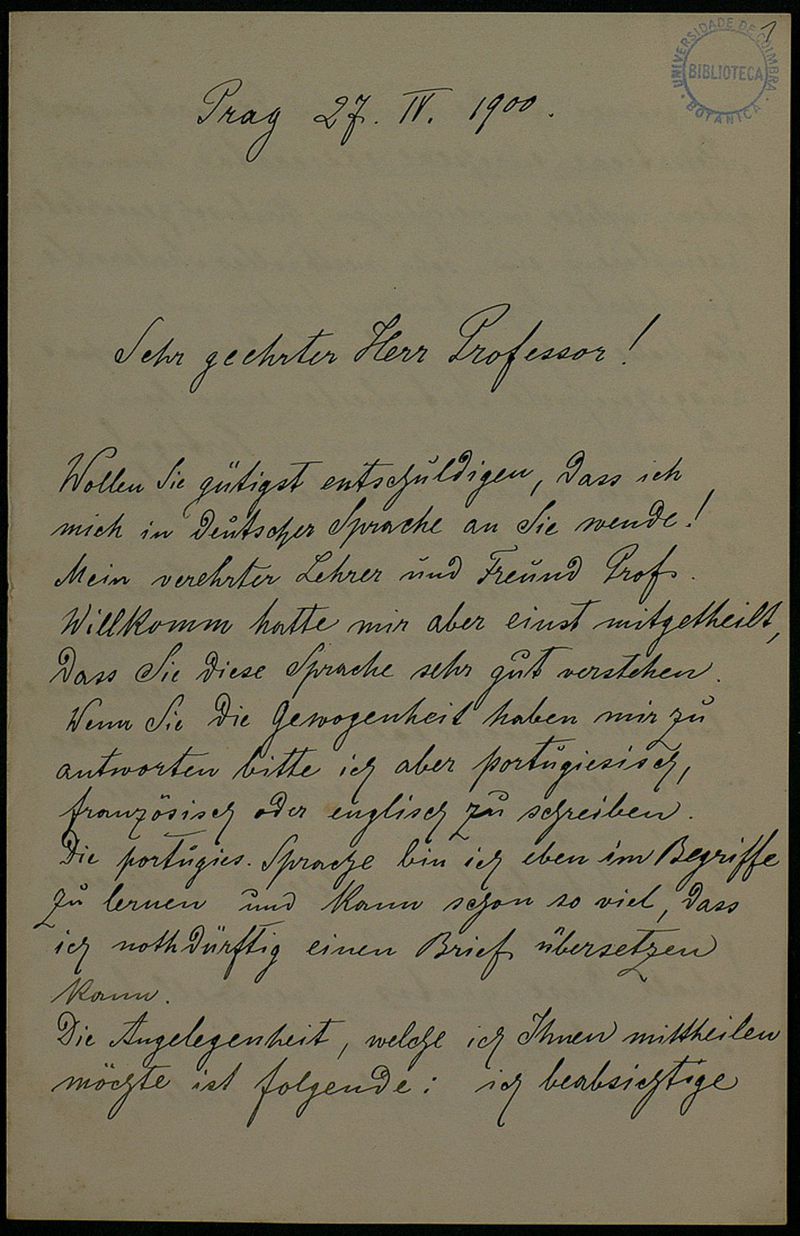 1
UNIVERSIDADE DE COIMBRA
BIBLIOTECA
BOTANICA
Prag 27. IV. 1900.
Sehr geehrter Herr Professor!
Wollen Sie gütigst entschuldigen, dass ich
mich in deutscher Sprache an Sie wende!
Mein verehrter Lehrer und Freund Prof.
Willkomm hatte mir aber einst mitgetheilt,
dass Sie diese Sprache sehr gut verstehen.
Wenn Sie die Gewogenheit haben mir zu
antworten bitte ich aber portugiesisch,
französisch oder englisch zu schreiben.
Die portugies. Sprache bin ich eben im Begriffe
zu lernen und kann schon so viel, dass
ich nothdürftig einen Brief übersetzen
kann.
Die Angelegenheit, welche ich Ihnen mittheilen
möchte ist folgende: ich beabsichtige